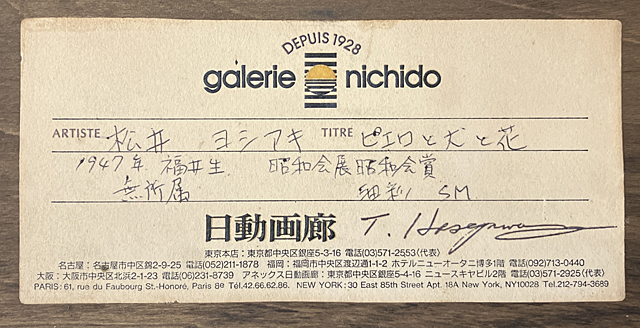 DEPUIS 1928
galerie nichido
ARTISTE 松井 ヨシアキ TITRE ピエロと犬と花
1947年 福井生 昭和会展昭和会賞
無所属 油彩 SM
日動画廊 T. Hasegawa
東京本店:東京都中央区銀座5-3-16 電話(03)571-2553(代表)
名古屋:名古屋市中区錦2-9-25 電話(052)211-1878 福岡:福岡市中央区渡辺通1-1-2 ホテルニューオータニ博多1階 電話(092)713-0440
大阪:大阪市中央区北浜2-1-23 電話(06)231-8739 アネックス日動画廊:東京都中央区銀座5-4-16 ニュースキヤビル2階 電話(03)571-2925(代表)
PARIS: 61, rue du Faubourg St.-Honoré, Paris 8e Tél.42.66.62.86. NEW YORK: 30 East 85th Street Apt. 18A New York, NY10028 Tel.212-794-3689